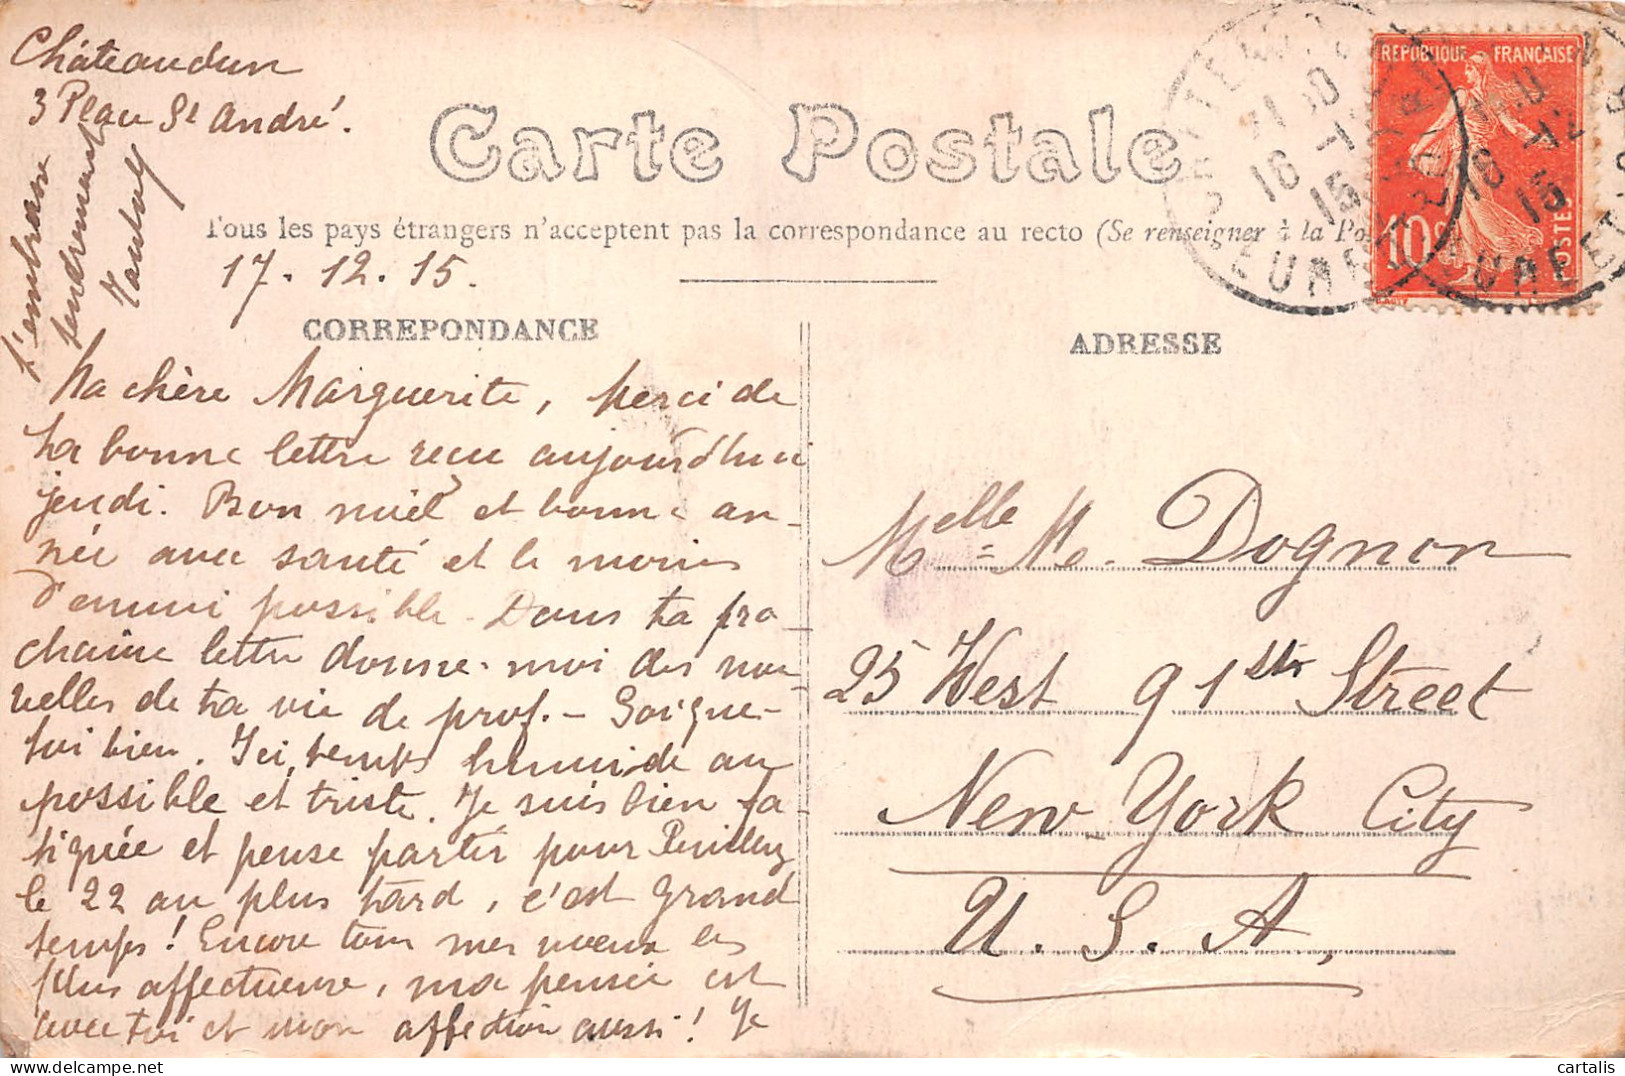 Châteaudun
3 Place St André.
Carte Postale
REPUBLIQUE FRANÇAISE
10c
POSTES
Tous les pays étrangers n'acceptent pas la correspondance au recto (Se renseigner à la Po
17. 12. 15.
CORREPONDANCE
ADRESSE
Ma chère Marguerite, merci de
ta bonne lettre reçue aujourd'hui
jeudi. Bon noël et bonne an-
née avec santé et le moins
d'ennui possible. Dans ta pro-
chaine lettre donne-moi des nou-
velles de ta vie de prof. - Soigne-
toi bien. Ici temps humide au
possible et triste. Je suis bien fa-
tiguée et pense partir pour
le 22 au plus tard, c'est grand
temps! Encore tous mes voeux les
plus affectueux, ma pensée est
avec toi et mon affection aussi! Je
t'embrasse
tendrement
Melle M. Dognon
25 West 91 Street
New-York City
U. S. A.
© cartalis